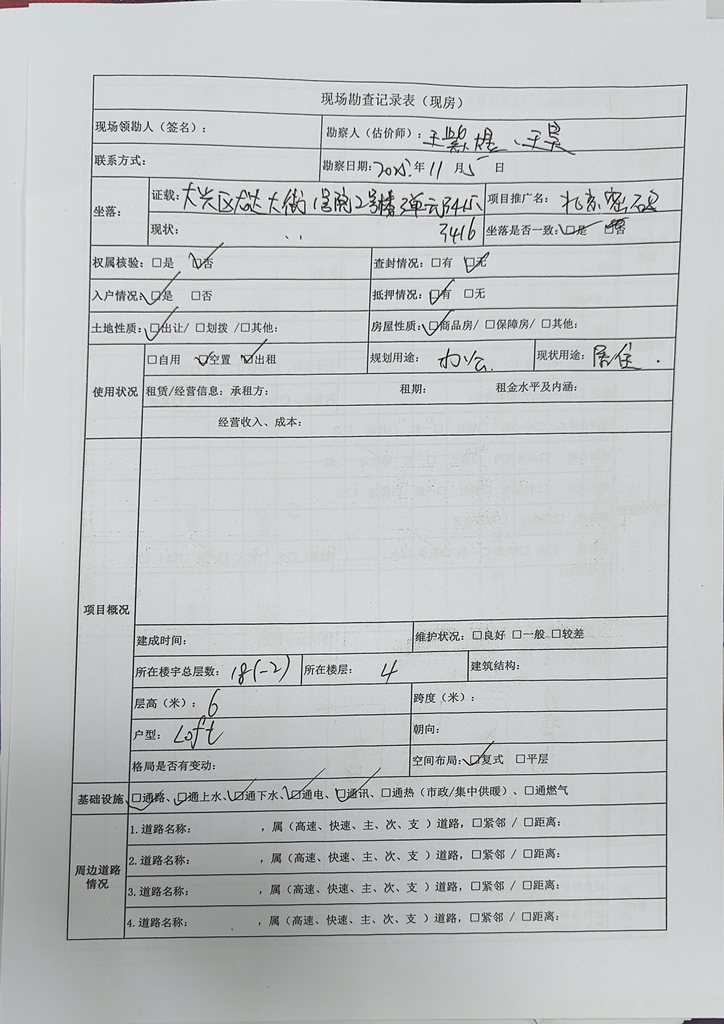 现场勘查记录表（现房）
现场领勘人（签名）： 勘察人（估价师）：王 、王昊
联系方式： 勘察日期:2025年11月5日
坐落： 证载：大兴区 大街1号院2号楼3单元3415、 项目推广名：北京密码
现状： 3416 坐落是否一致:☑是 □否
权属核验：□是 ☑否 查封情况：□有 ☑无
入户情况：☑是 □否 抵押情况：☑有 □无
土地性质：☑出让/ □划拨 /□其他： 房屋性质：☑商品房/ □保障房/ □其他：
使用状况 □自用 ☑空置 ☑出租 规划用途：办公 现状用途：居住.
租赁/经营信息：承租方： 租期： 租金水平及内涵：
经营收入、成本：
项目概况
建成时间： 维护状况：□良好 □一般 □较差
所在楼宇总层数：18(-2) 所在楼层：4 建筑结构：
层高（米）：6 跨度（米）：
户型：Loft 朝向：
格局是否有变动： 空间布局：☑复式 □平层
基础设施 ☑通路、☑通上水、☑通下水、☑通电、☑通讯、□通热（市政/集中供暖）、□通燃气
周边道路情况 1.道路名称： ，属（高速、快速、主、次、支 ）道路，□紧邻 / □距离：
2.道路名称： ，属（高速、快速、主、次、支 ）道路，□紧邻 / □距离：
3.道路名称： ，属（高速、快速、主、次、支 ）道路，□紧邻 / □距离：
4.道路名称： ，属（高速、快速、主、次、支 ）道路，□紧邻 / □距离：